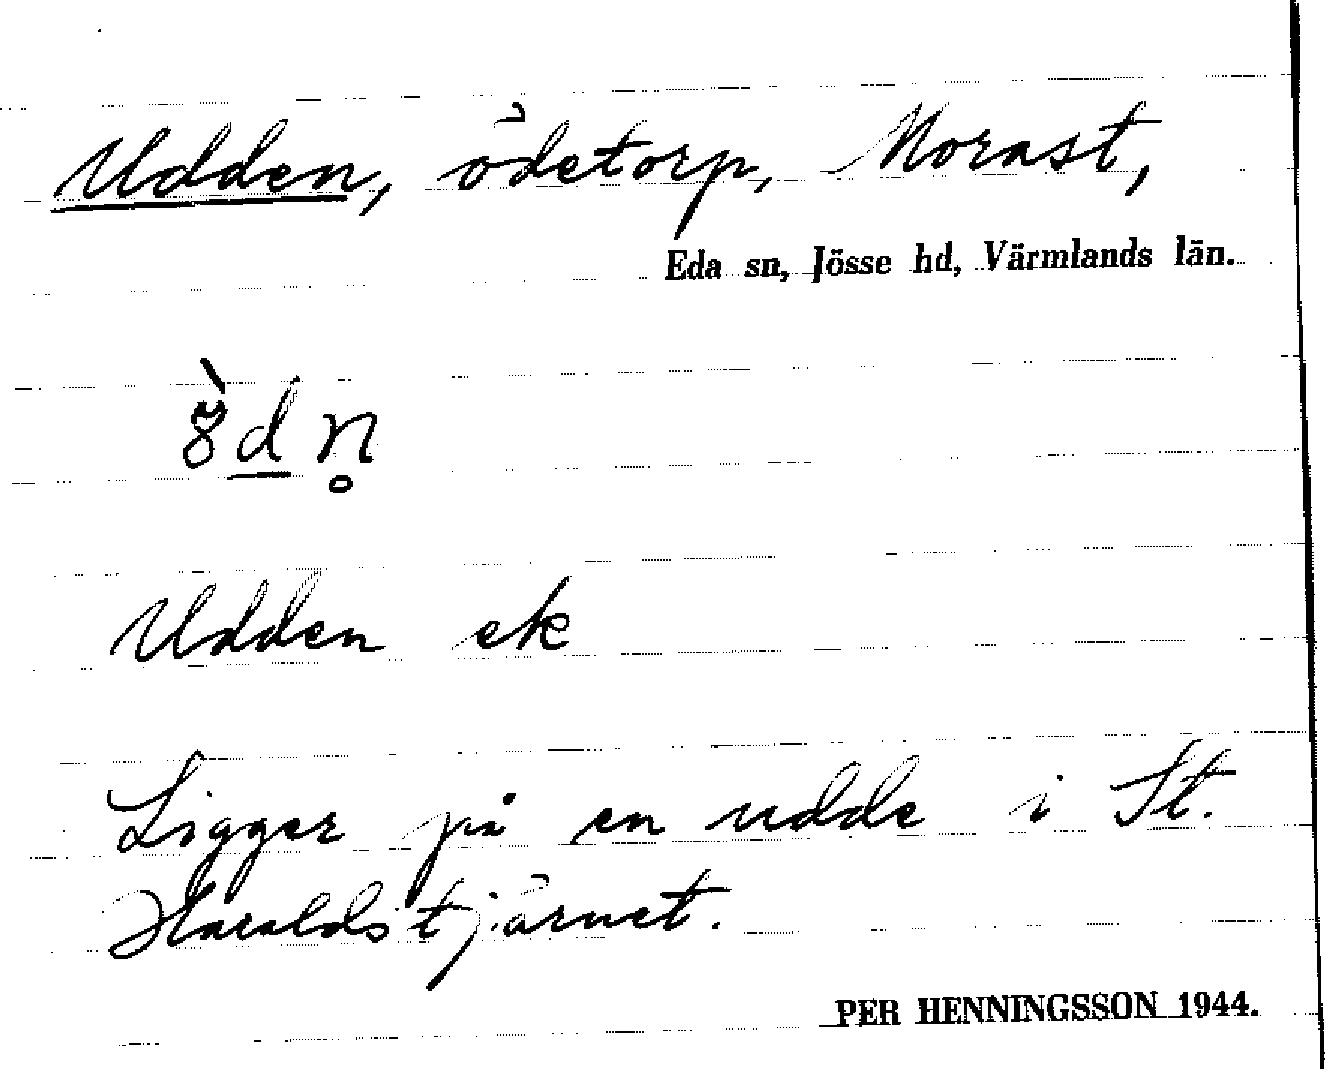 Udden, ödetorp, Morast,
Eda sn, Jösse hd, Värmlands län.
Udden ek
Ligger på en udde i St.
Haraldstjärnet.
PER HENNINGSSON 1944.